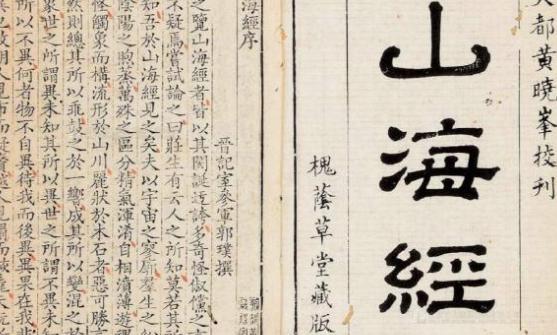 都黃曉峯校刊
山海經
槐蔭草堂藏版
海經序
晉記室參軍郭璞撰
之覽山海經者皆以其閎誕迂誇多奇怪俶儻之
不疑焉嘗試論之曰莊生有云人之所知莫若其
知吾於山海經見之矣夫以宇宙之寥廓羣生之紛
陰陽之煦蒸萬殊之區分精氣渾淆自相濆薄遊魂
怪觸象而構流形於山川麗狀於木石者惡可勝
然則總其所以乖鼓之於一響成其所以變混之於
象世之所謂異未知其所以異世之所謂不異未知
所以不異何者物不自異待我而後異異果在我非
也故胡人見布而疑黂越人見罽而駭毳